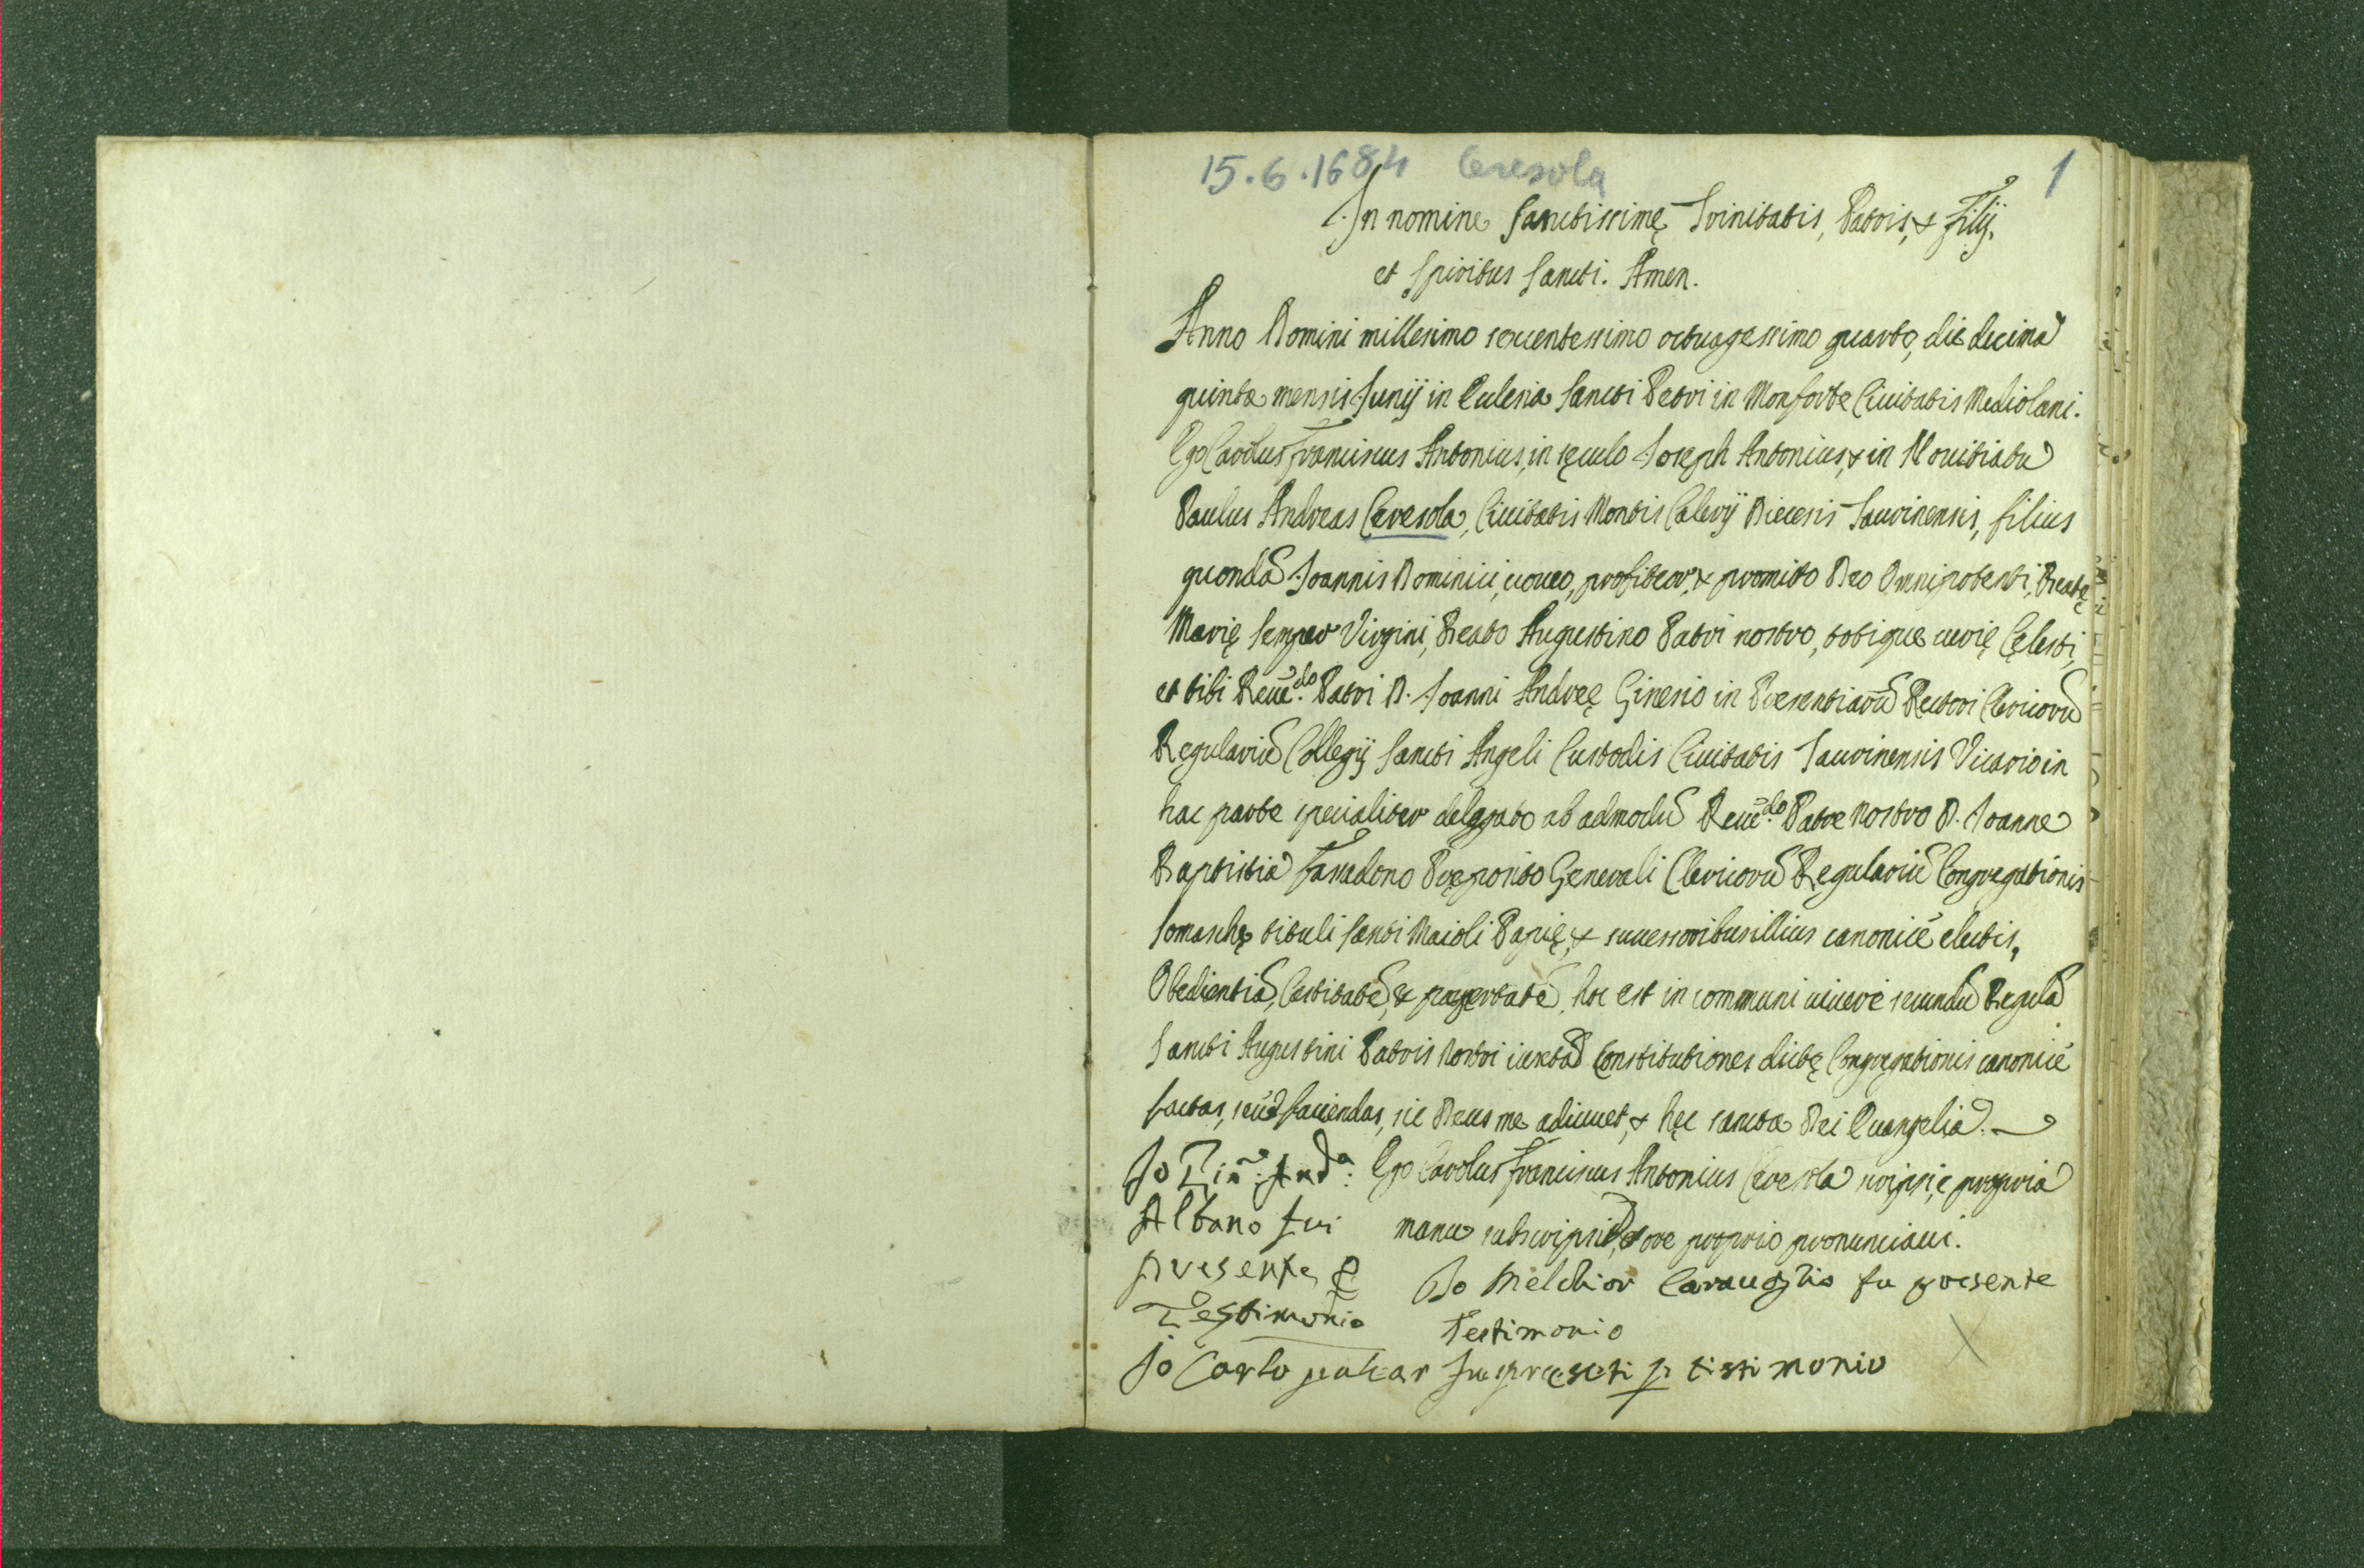 15.6.1684 Ceresola 1
In nomine Sanctissimę Trinitatis, Patris, & Filij,
et Spiritus Sancti. Amen.
Anno Domini millesimo sexcentessimo octuagessimo quarto, die decima
quinta mensis Junij in Ecclesia Sancti Petri in Monforte Ciuitatis Mediolani.
Ego Carolus Franciscus Antonius, in sęculo Joseph Antonius, & in Nouitiatu
Paulus Andreas Ceresola, Ciuitatis Montis Calerij Diecesis Taurinensis, filius
quondã Joannis Dominici, uoueo, profiteor, & promito Deo Omnipotenti, Beatę
Marię Semper Virgini, Beato Augustino Patri nostro, totique curię Cęlesti,
et tibi Reuẽ.do Patri D. Joanni Andreę Ginesio in Presentiarũ Rectori Clericorũ
Regulariũ Collegij Sancti Angeli Custodis Ciuitatis Taurinensis Vicario in
hac parte specialiter delegato ab admodũ Reuẽ.do Patre Nostro D. Joanne
Baptistia Pręposito Generali Clericorũ Regulariũ Congregationis
Somaschę tituli Santi Maioli Papię, & successoribus illius canonicè electis,
Obedientiã, Castitatẽ, & paupertatẽ, hoc est in communi uiuere secundũ Regulã
Sancti Augustini Patris Nostri iuxta Constitutiones dictę Congregationis canonicè
factas, seu faciendas, sic Deus me adiuuet, & hęc sancta Dei Euangelia.
Ego Carolus Franciscus Antonius Ceresola scripsi, & propria
manu subscripsi, & ore proprio pronunciaui.
Jo And.a:
Albano fui
presente p
Testimonio
Jo Melchior Carauoglio fu presente
Testimonio
Jo Carlo fu preseti p tistimonio